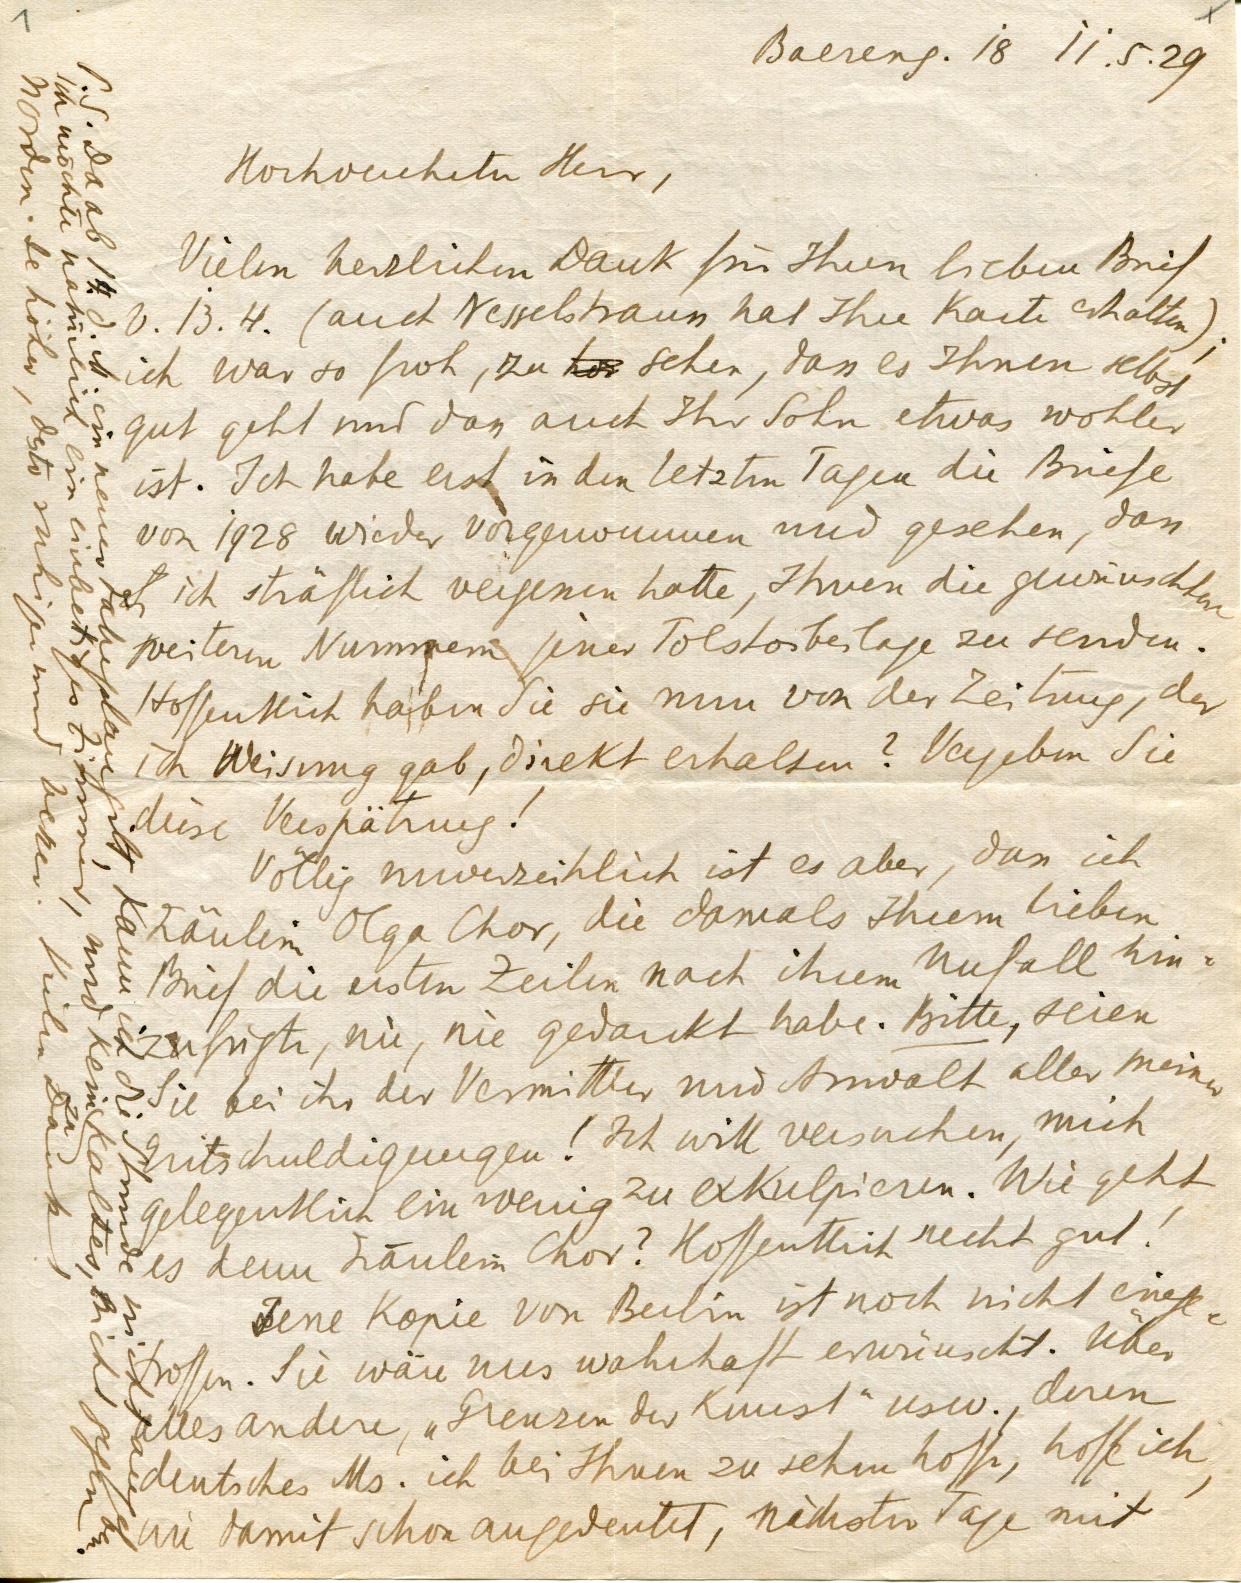 Baereng. 18 11.5.29
Hochverehrter Herr,
Vielen herzlichen Dank für Ihren lieben Brief
v. 13.4. (auch Nesselstrauss hat Ihre Karte erhalten);
ich war so froh, zu hör sehen, dass es Ihnen selbst
gut geht und dass auch Ihr Sohn etwas wohler
ist. Ich habe erst in den letzten Tagen die Briefe
von 1928 wieder vorgenommen und gesehen, dass
ich sträflich vergessen hatte, Ihnen die gewünschten
weiteren Nummern jener Tolstoibeilage zu senden.
Hoffentlich haben Sie sie nun von der Zeitung, der
ich Weisung gab, direkt erhalten? Vergeben Sie
diese Verspätung!
Völlig unverzeihlich ist es aber, dass ich
Fräulein Olga Chor, die damals Ihrem lieben
Brief die ersten Zeilen nach ihrem Unfall hin=
zufügte, nie, nie gedankt habe. Bitte, seien
Sie bei ihr der Vermittler und Anwalt aller meiner
Entschuldigungen! Ich will versuchen, mich
gelegentlich ein wenig zu exkulpieren. Wie geht
es denn Fräulein Chor? Hoffentlich recht gut!
Jene Kopie von Berlin ist noch nicht einge=
troffen. Sie wäre uns wahrhaft erwünscht. Über
alles andere, „Grenzen der Kunst“ usw., deren
deutsches Ms. ich bei Ihnen zu sehen hoffe, hoffe ich,
wie damit schon angedeutet, nächster Tage mit
P.S. Da ab 14. d. ist ein neuer Fahrplan gilt kann ich die Stunde nicht angeben.
Ich möchte natürlich ein einbettiges Zimmer, und kein kaltes, nicht gegen
Norden. Je höher, desto ruhiger und lieber. Vielen Dank!